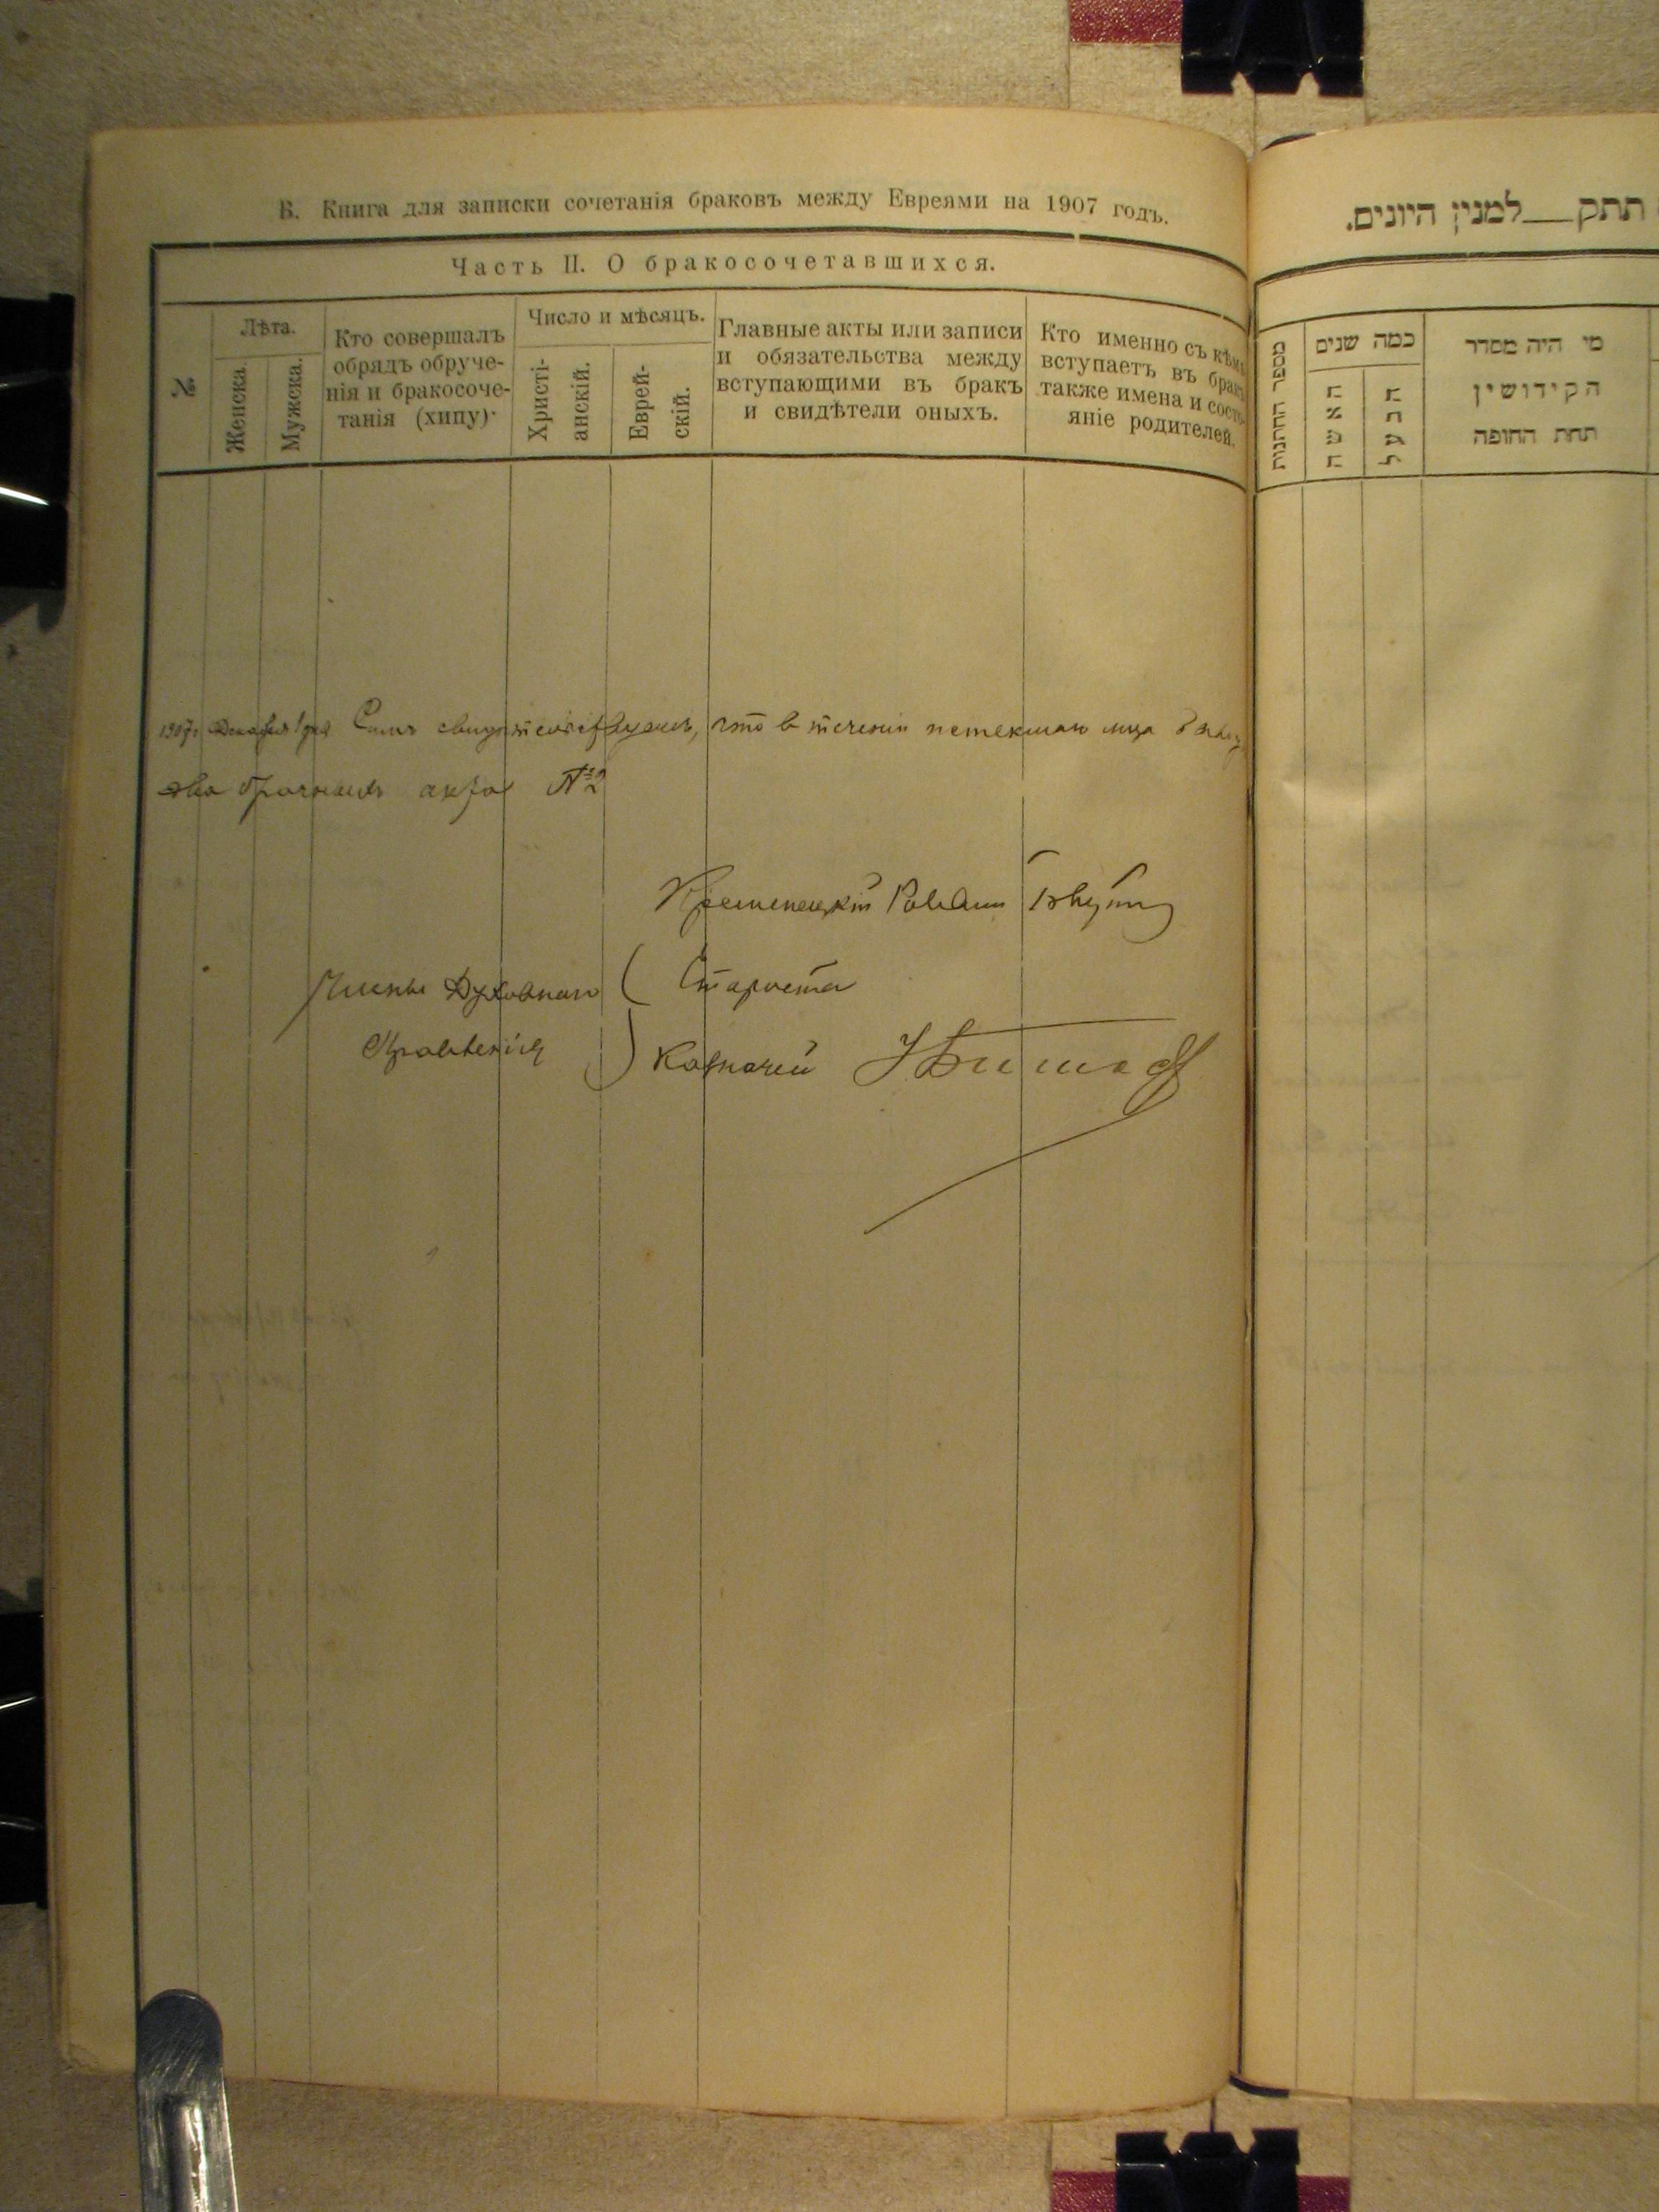 В. Книга для записки сочетанія браковъ между Евреями на 1907 годъ.
Часть II. О бракосочетавшихся.
№
Лѣта.
Женска.
Мужска.
Кто совершалъ
обрядъ обруче-
нія и бракосоче-
танія (хипу).
Число и мѣсяцъ.
Христі-
анскій.
Еврей-
скій.
Главные акты или записи
и обязательства между
вступающими въ бракъ
и свидѣтели оныхъ.
Кто именно съ кѣмъ
вступаетъ въ бракъ
также имена и состо-
яніе родителей.
1907 г. Декабря 1 дня Симъ свидѣтельствуемъ, что в теченіи истекшаго м-ца
два брачныхъ акта №2
Кременецкій Раввинъ
Члены Духовнаго
Правленія
Староста
Казначей
תתק__למנין היונים.
מספר החתנות
כמה שנים
האשה
הבעל
מי היה מסדר
הקידושין
תחת החופה